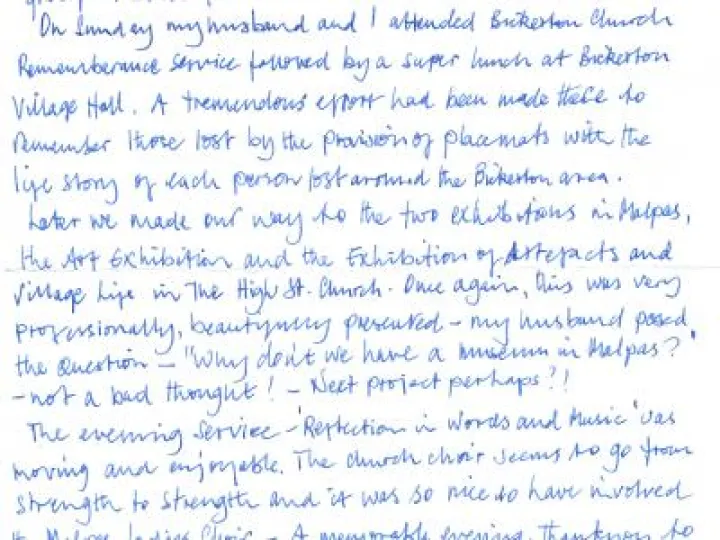 On Sunday my husband and I attended Bickerton Church
Rememberance Service followed by a super lunch at Bickerton
Village Hall. A tremendous effort had been made there to
remember those lost by the provision of placemats with the
life story of each person lost around the Bickerton area.
Later we made our way to the two exhibitions in Malpas,
the Art Exhibition and the Exhibition of Artefacts and
Village Life in The High St. Church. Once again, this was very
professionally, beautifully presented - my husband posed
the question - "Why don't we have a museum in Malpas?"
- not a bad thought! - Next project perhaps?!
The evening Service - 'Reflection in Words and Music' was
moving and enjoyable. The church choir seems to go from
strength to strength and it was so nice to have involved
the Malpas Ladies Choir - A memorable evening. Thankyou to